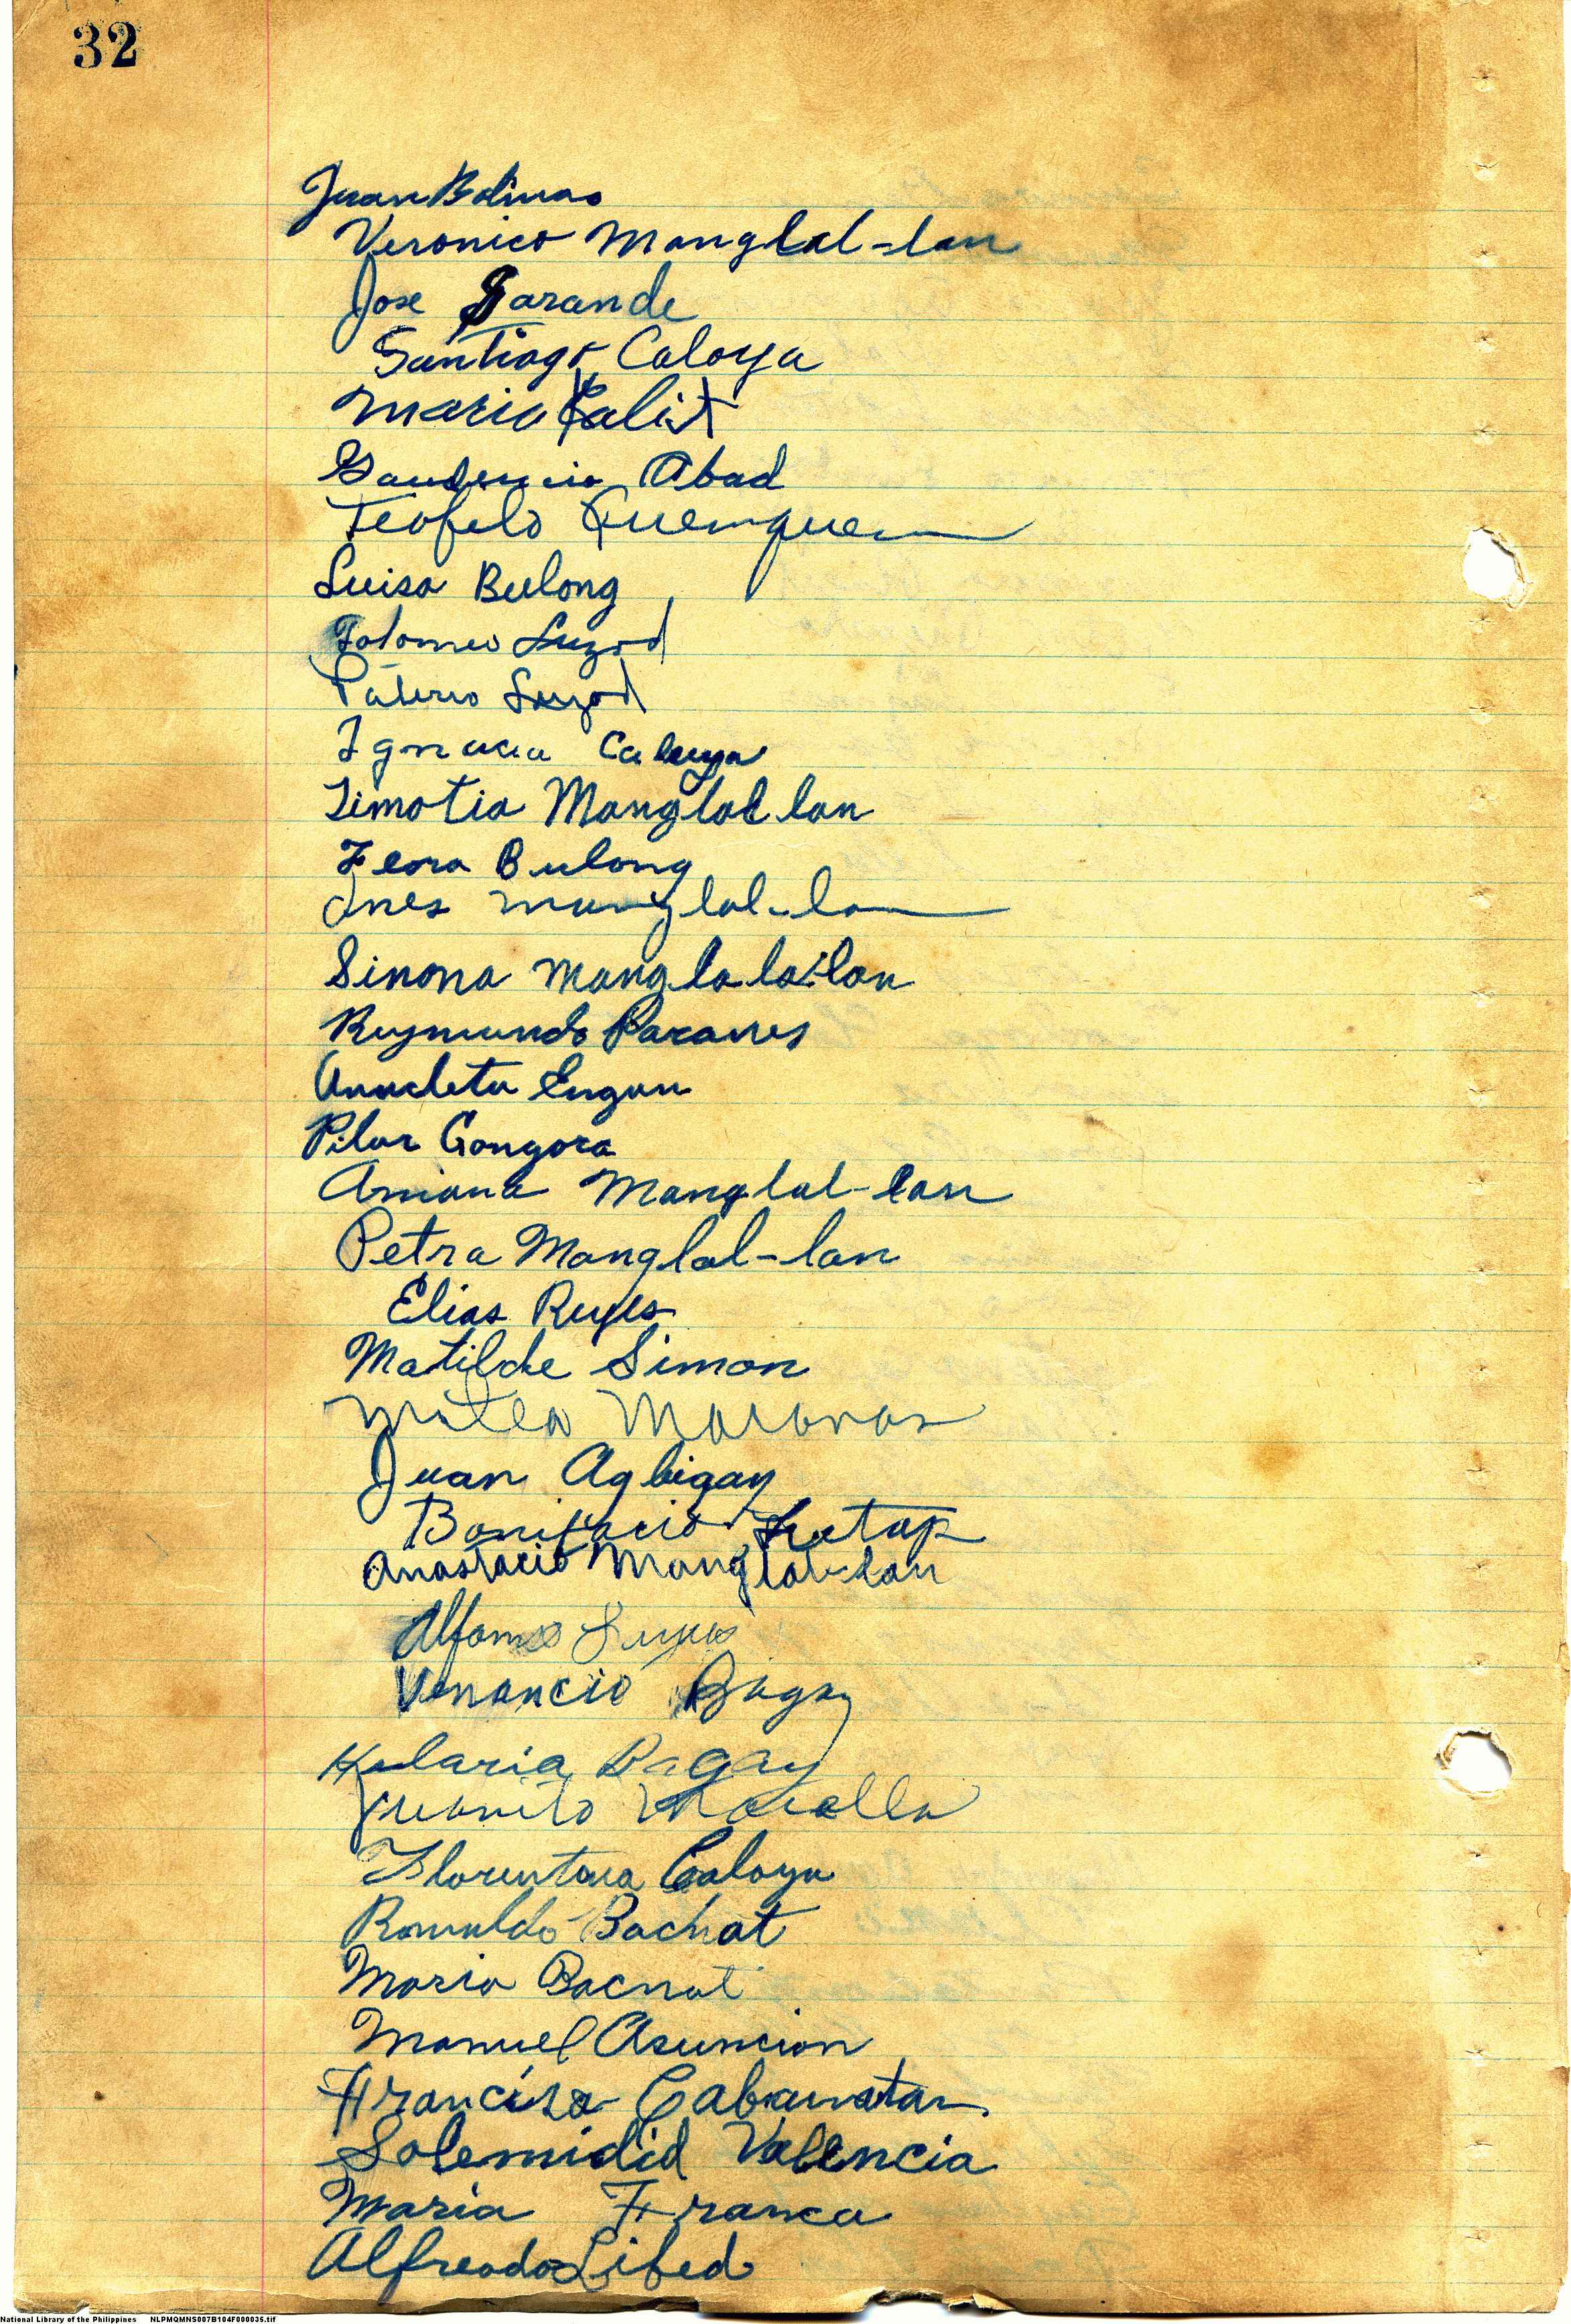 32
Juan Bolinas
Veronico Manglal-lan
Jose Garande
Santiago Caloya
Maria Calixt
Gaudencio Abad
Teofelo Quemquem
Luisa Bulong
Tolomeo Luzod
Paterno Luzod
Ignacia Caloya
Timotia Manglal lan
Flora Bulong
Ines Manglal-lan
Simona Manglalallan
Reymundo Paranes
Anacleta Engan
Pilar Gongora
Amiana Manglal-lan
Petra Manglal-lan
Elias Reyes
Matilde Simon
Matea
Juan Agbigay
Bonifacio
Anastacio Manglal-lan
Alfonso
Venancio Bagay
Hilaria Bagay
Juanito
Florentina Caloya
Romuldo Bacnat
Maria Bacnat
Manuel Asuncion
Francisa Cabanatan
Solemidid Valencia
Maria Franca
Alfredo Libed
National Library of the Philippines NLPMQMNS007B104F000035.tif